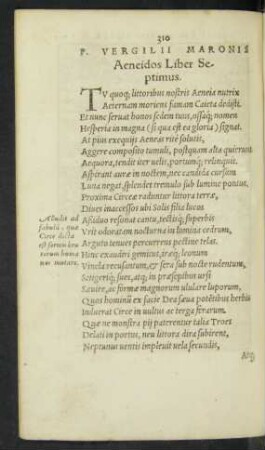 310
P. VERGILII MARONIS
Aeneidos Liber Se-
ptimus.
TV quoq; littoribus nostris Aeneia nutrix
Aeternam moriens famam Caieta dedisti.
Et nunc seruat honos sedem tuus, ossaq; nomen
Hesperia in magna (si qua est ea gloria) signat.
At pius exequijs Aeneas rite solutis,
Aggere composito tumuli, postquam alta quierunt
Aequora, tendit iter uelis, portumq; relinquit.
Aspirant aurae in noctem, nec candida cursum
Luna negat, splendet tremulo sub lumine pontus,
Proxima Circeae raduntur littora terrae,
Diues inaccessos ubi Solis filia lucos
Assiduo resonat cantu, tectisq; superbis
Vrit odoratam nocturna in lumina cedrum,
Arguto tenues percurrens pectine telas.
Hinc exaudiri gemitus, iraeq; leonum
Vincla recusantum, et sera sub nocte rudentum,
Setigeriq; sues, atq; in praesepibus ursi
Saeuire, ac formae magnorum ululare luporum,
Quos hominũ ex facie Dea saeua potẽtibus herbis
Induerat Circe in uultus ac terga ferarum.
Quae ne monstra pij paterentur talia Troes
Delati in portus, neu littora dira subirent,
Neptunus uentis impleuit uela secundis,
Alludit ad
fabulã, qua
Circe dicta
est formas
homi
nes mutare.